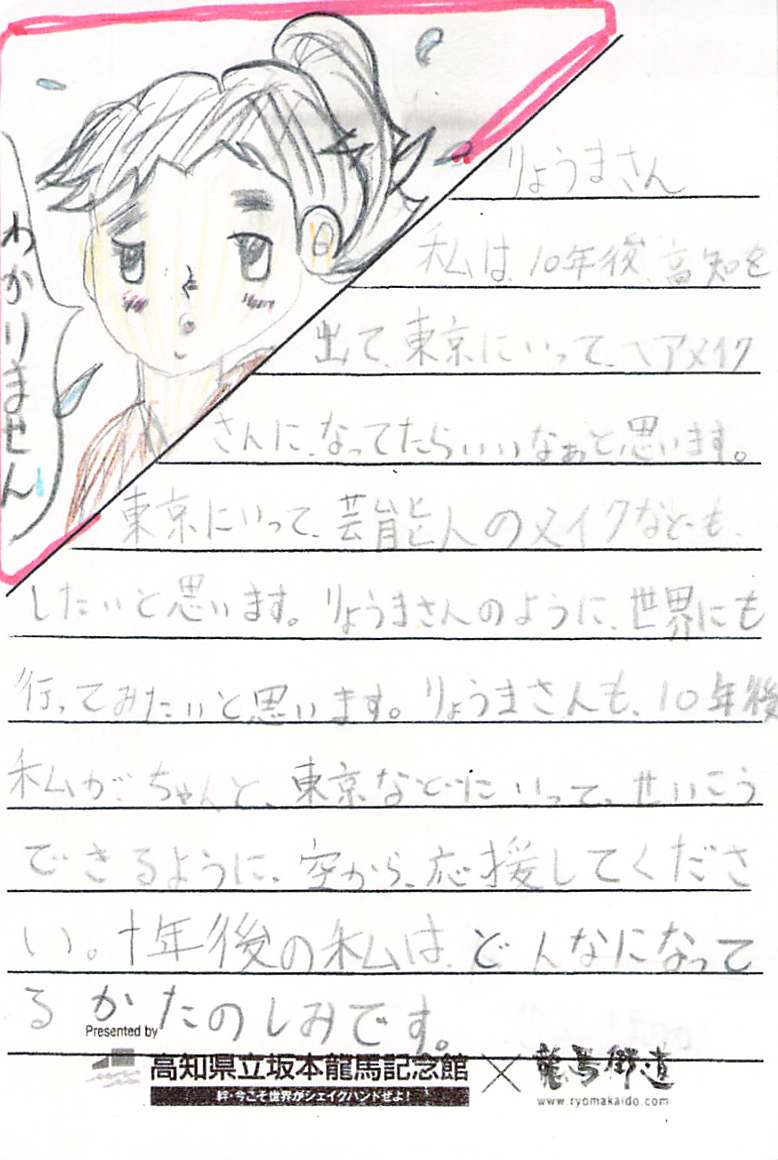 わかりません
りょうまさん
私は、10年後、高知を
出て、東京にいって、ヘアメイク
さんに、なってたらいいなぁと思います。
東京にいって、芸能人のメイクなども、
したいと思います。りょうまさんのように、世界にも
行ってみたいと思います。りょうまさんも、10年後
私が、ちゃんと、東京などにいって、せいこう
できるように、空から、応援してくださ
い。十年後の私は、どんなになって
るかたのしみです。
Presented by
高知県立坂本龍馬記念館
絆・今こそ世界がシェイクハンドせよ!
龍馬街道
www.ryomakaido.com